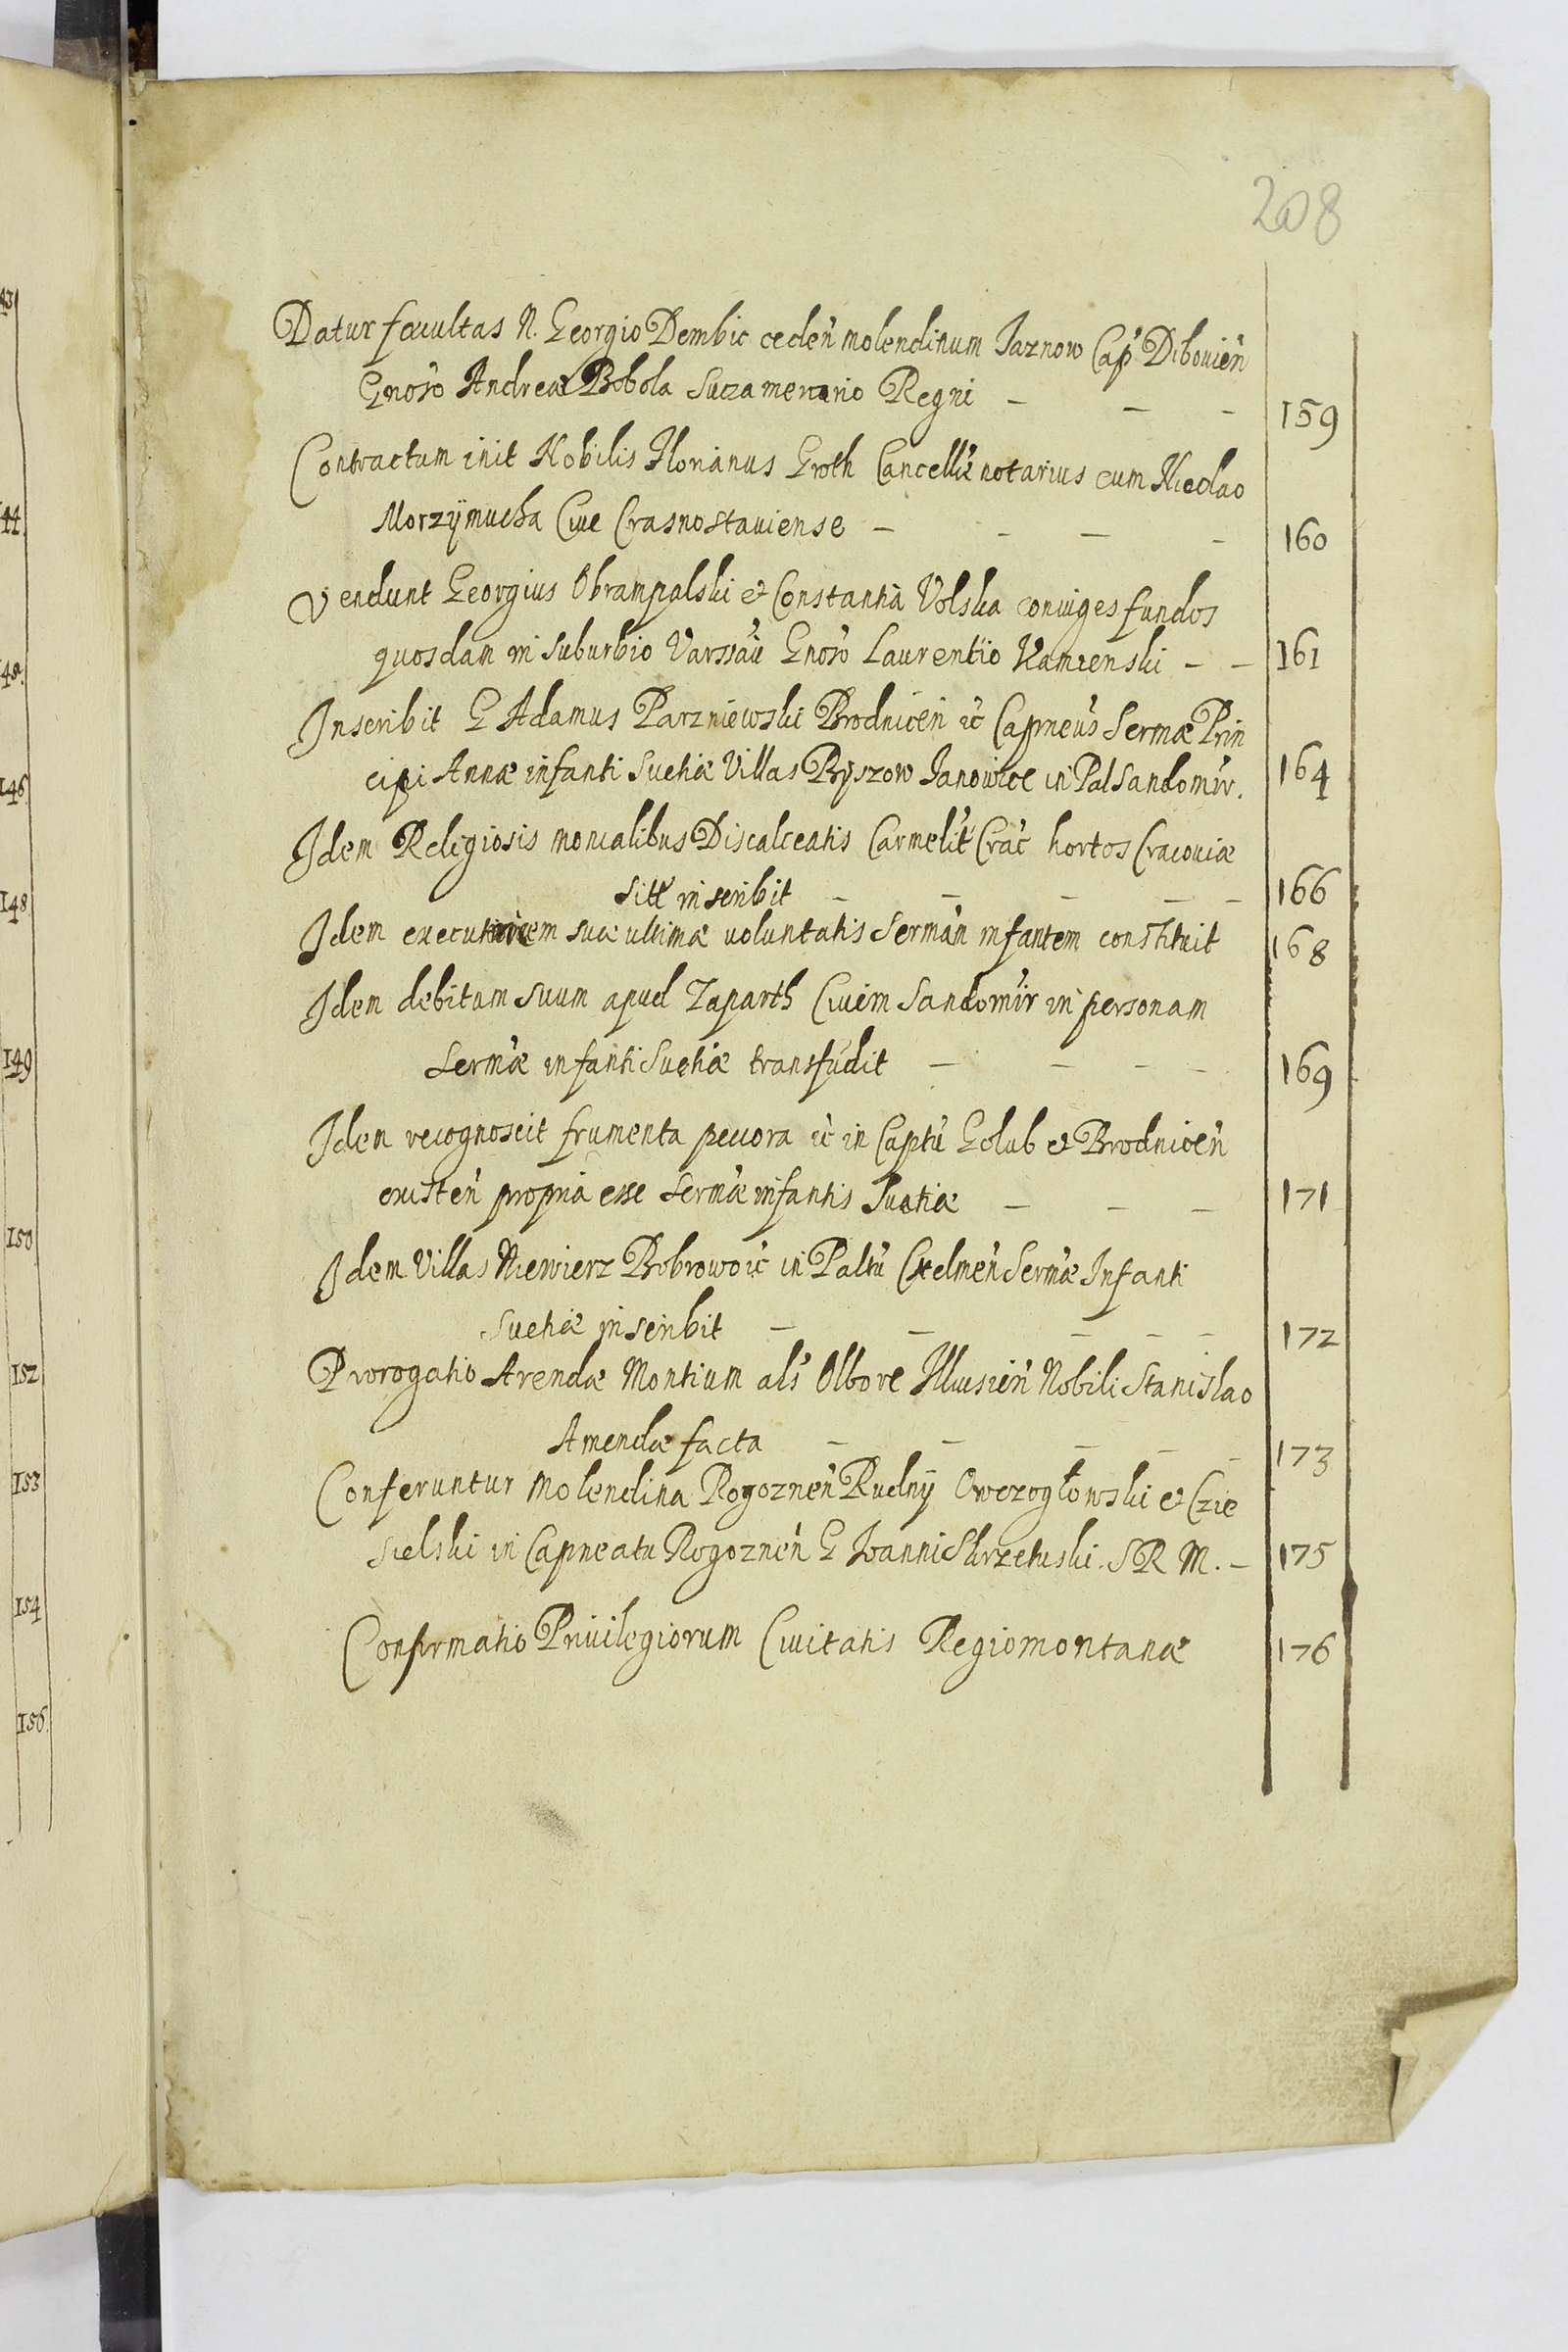 208
Datur facultas N. Georgio Dembic ceden molendinum Jaznow Cap Dibouien
Gnoso Andreæ Bobola Succamerario Regni - - - 159
Contractum init Nobilis Florianus Groth Cancellie notarius cum Nicolao
Morzÿmucha Ciue Crasnostauiense - - - - 160
Vendunt Georgius Obrampalski et Constantia Volska coniuges fundos
quosdam in suburbio Varssau Gnoso Laurentio Kamienski - - 161
Inscribit G Adamus Parzniewski Brodnicen ic Capneus Sermæ Prin
cipi Annæ infanti Suetiæ Villas Ryszow Janowice in Pal Sandomir. 164
Idem Religiosis monialibus Discalceatis Carmelit Crac hortos Cracouiæ
sitt inscribit - - - - - 166
Idem executricem suæ ultimæ uoluntatis Serman infantem constituit 168
Idem debitum suum apud Zaparth Ciuem Sandomir in personam
Sermæ infanti Suetiæ transfudit - - - - 169
Idem recognoscit frumenta peccora ic in Captu Golub et Brodnicen
existen propria esse Sermæ infantis Suetiæ - - - 171
Idem Villas Niewierz Bobrowo ic in Paltu Chelmen Sermæ Infanti
Suetiæ inscribit - - - - - 172
Prorogatio Arendæ Montium als Olbore Illcusien Nobili Stanislao
Amendæ facta - - - - - 173
Conferuntur Molendina Rogoznen Rudnÿ Owczogłowski et Czie
sielski in Capneatu Rogoznen G Joanni Skrzetuski. S R M. - 175
Confirmatio Priuilegiorum Ciuitatis Regiomontanæ 176
43
44
146
148
149
150
152
153
154
156